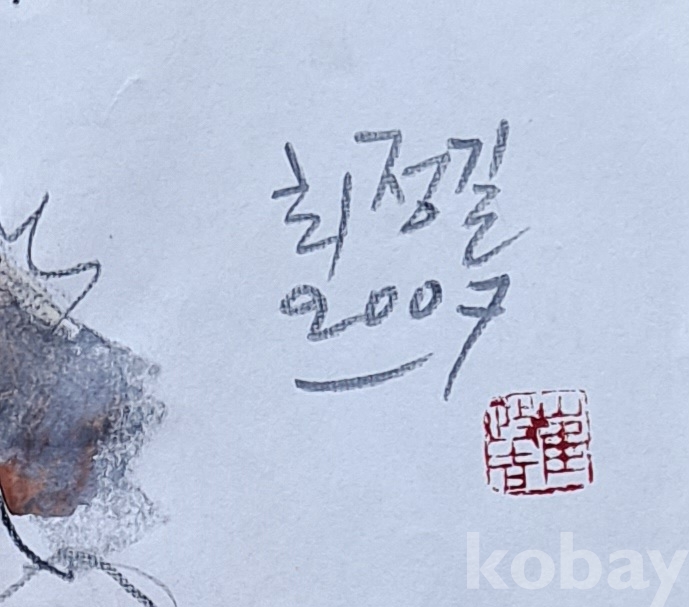 최정길
2007
kobay